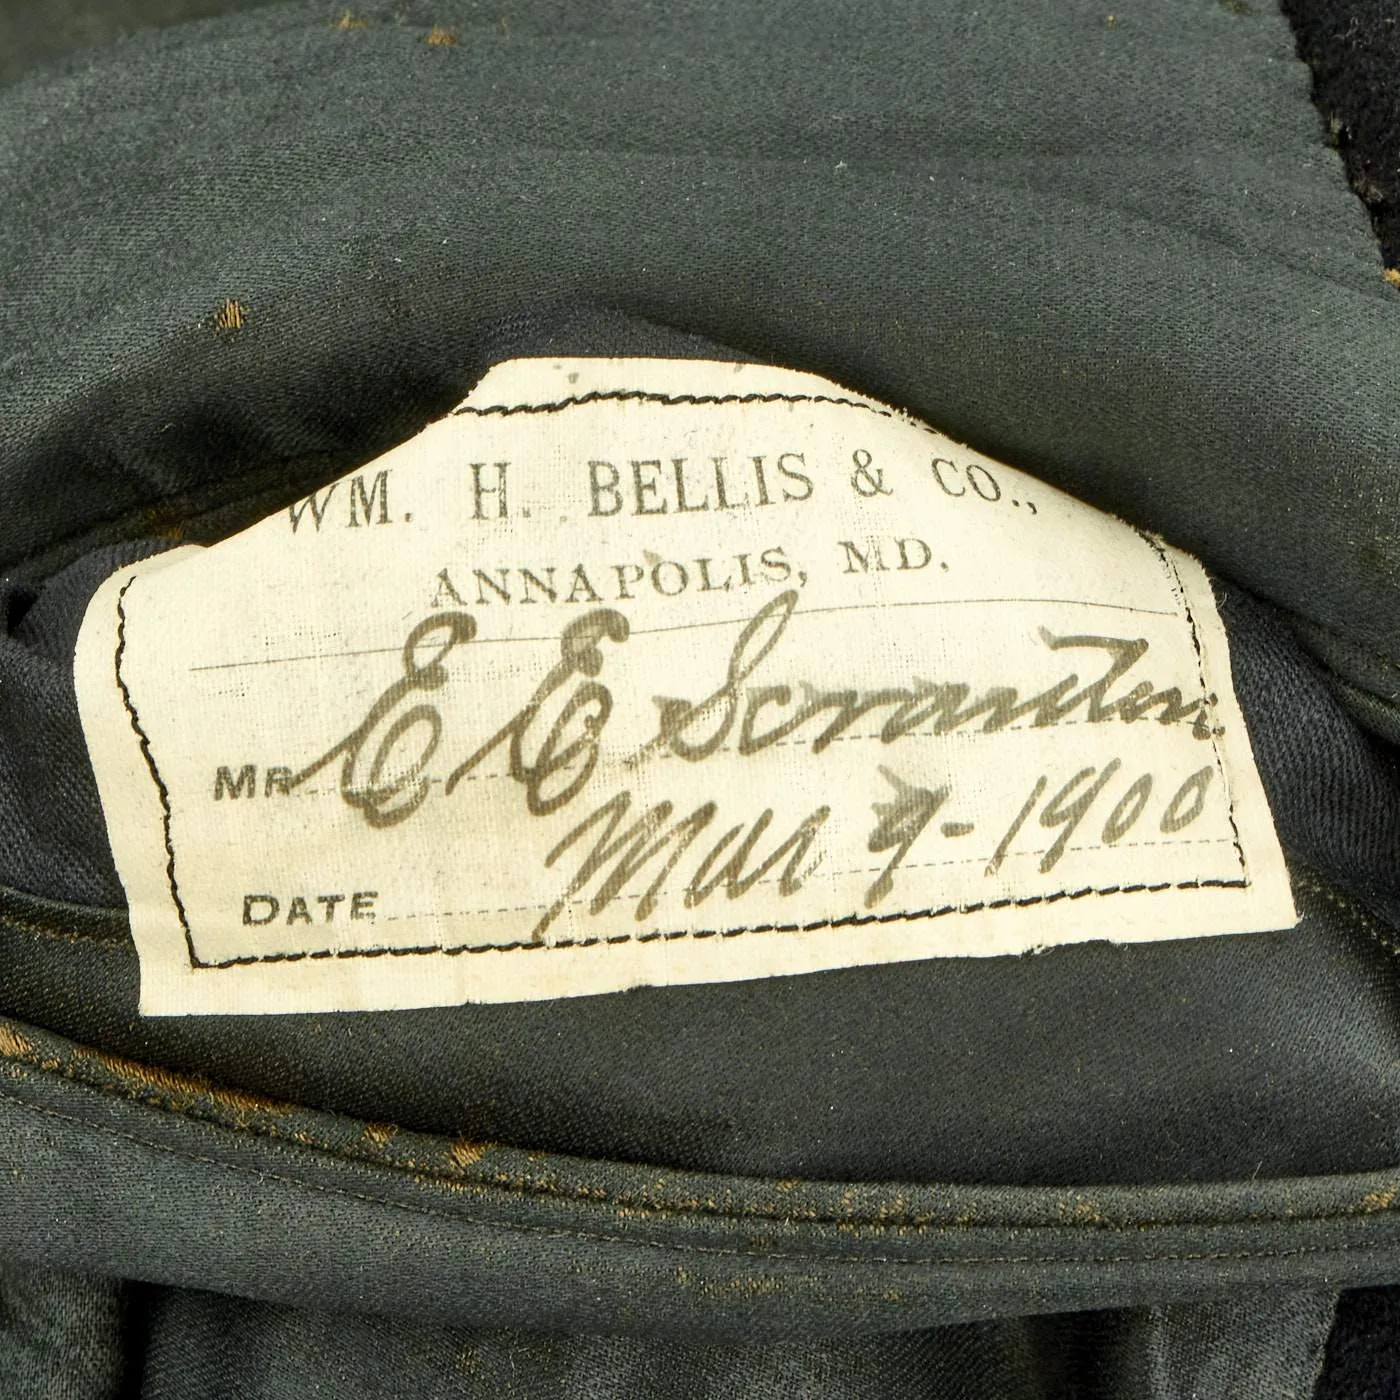 WM. H. BELLIS & CO.,
ANNAPOLIS, MD.
MR. E E Scranton
DATE Mar 7-1900